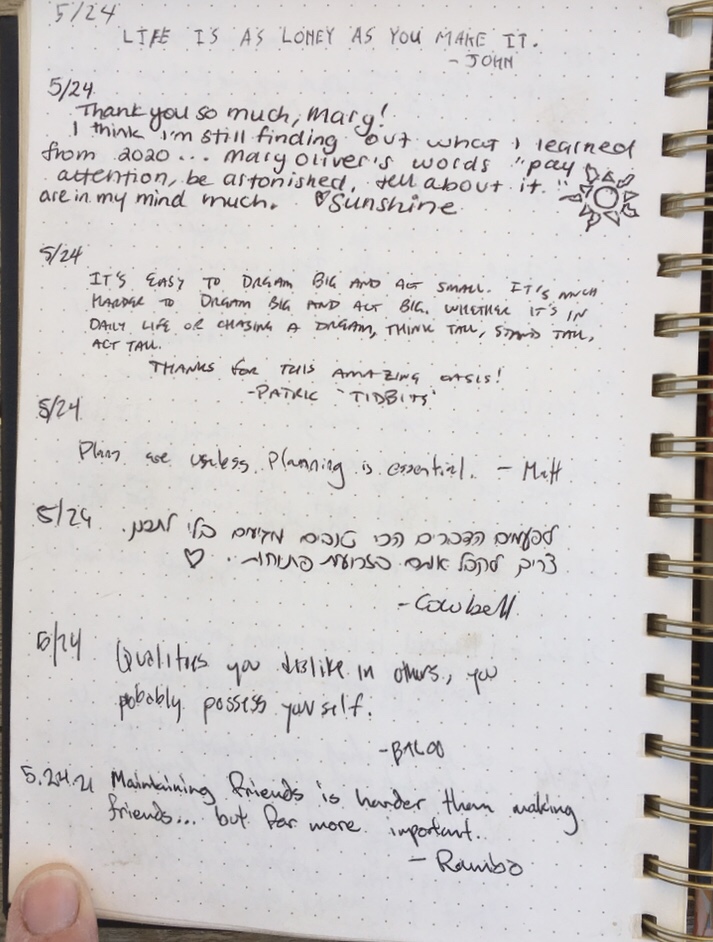 5/24
LIFE IS AS LONEY AS YOU MAKE IT.
- JOHN
5/24
Thank you so much, Mary!
I think I'm still finding out what I learned
from 2020... Mary Oliver's words "pay
attention, be astonished, tell about it."
are in my mind much. ♡Sunshine
5/24
IT'S EASY TO DREAM BIG AND ACT SMALL. IT'S MUCH
HARDER TO DREAM BIG AND ACT BIG. WHETHER IT'S IN
DAILY LIFE OR CHASING A DREAM, THINK TALL, STAND TALL,
ACT TALL.
THANKS FOR THIS AMAZING OASIS!
-PATRIC "TIDBITS"
5/24
Plans are useless. Planning is essential. - Matt
5/24
לפעמים הדברים הכי טובים מגיעים בלי לתכנן.
צריך לקבל אותם בזרועות פתוחות. ♡
- Cowbell
5/24
Qualities you dislike in others, you
pobably possess yourself.
5.24.21 Maintaining friends is harder than making
friends... but far more important.
- Rambo